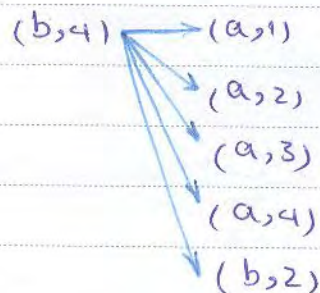 (b,4) (a,1)
(a,2)
(a,3)
(a,4)
(b,2)